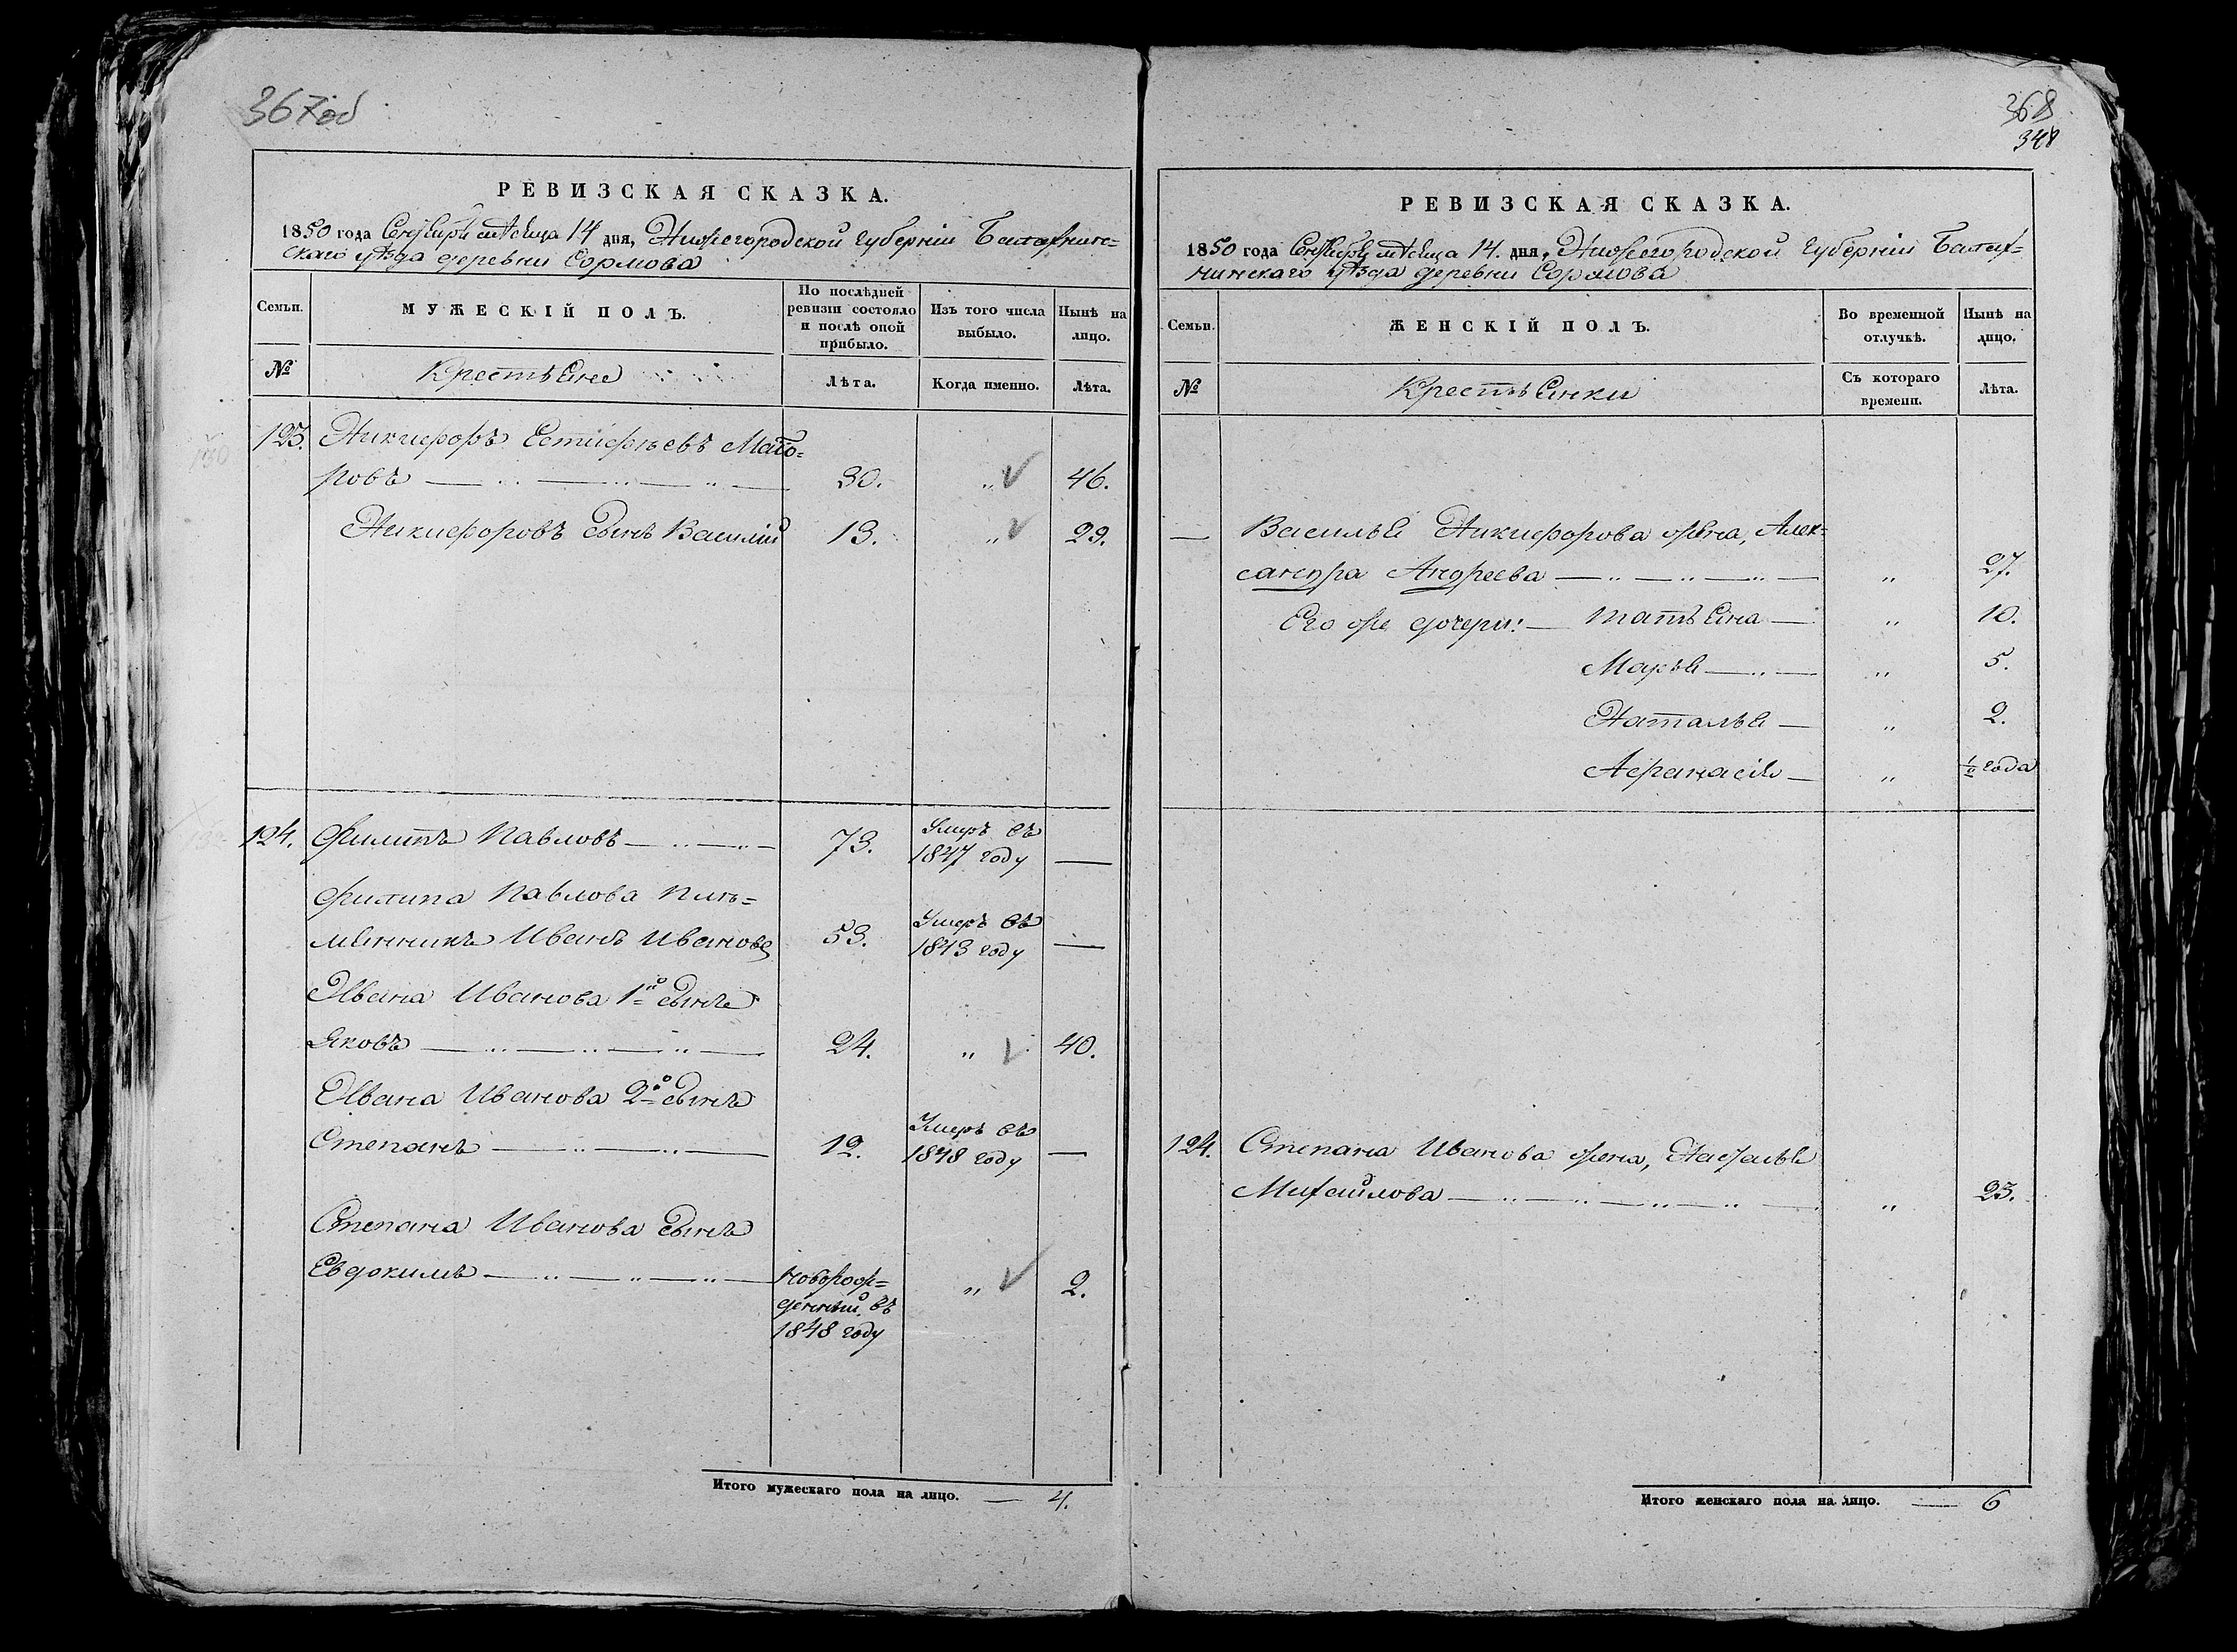 367об
РЕВИЗСКАЯ СКАЗКА.
1850 года Сентября мѣсяца 14 дня, Нижегородской губерніи Балахнин=
скаго уѣзда деревни Сормова
Семьи.
МУЖЕСКІЙ ПОЛЪ.
По послѣдней
ревизіи состояло
и послѣ оной
прибыло.
Изъ того числа
выбыло.
Нынѣ на
лицо.
№
Крестьяне
Лѣта.
Когда именно.
Лѣта.
123. Никифоръ Естифѣевъ
30. „ 46.
Никифоровъ сынъ Василій 13. „ 29.
124. Филипъ Павловъ 73. Умеръ въ
1847 году —
Филипа Павлова Плѣ=
мянникъ Иванъ Ивановъ 53. Умеръ въ
1843 году —
Ивана Иванова 1й сынъ
Яковъ 24. „ 40.
Ивана Иванова 2й сынъ
Степанъ 12. Умеръ въ
1848 году —
Степана Иванова сынъ
Евдокимъ новорож=
денный въ
1848 году „ 2.
Итого мужескаго пола на лицо. — 4.
368
348
РЕВИЗСКАЯ СКАЗКА.
1850 года Сентября мѣсяца 14. дня, Нижегородской губерніи Балах=
нинскаго уѣзда деревни Сормова
Семьи.
ЖЕНСКІЙ ПОЛЪ.
Во временной
отлучкѣ.
Нынѣ на
лицо.
№
Крестьянки
Съ котораго
времени.
Лѣта.
— Василья Никифорова жена, Алек=
сандра Андреева „ 27.
Его же дочери: — Татьяна — „ 10.
Марья „ 5.
Наталья — „ 2.
Афанасія — „ ½ года
124. Степана Иванова жена, Наталья
Михайлова „ 23.
Итого женскаго пола на лицо. — 6